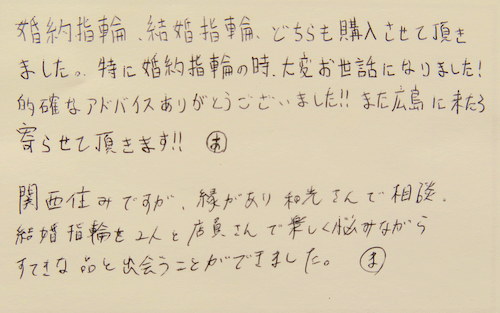 婚約指輪、結婚指輪、どちらも購入させて頂き
ました。特に婚約指輪の時、大変お世話になりました！
的確なアドバイスありがとうございました!! また広島に来たら
寄らせて頂きます!! あ
関西住みですが、縁があり和光さんで相談、
結婚指輪を2人と店員さんで楽しく悩みながら
すてきな品と出会うことができました。 ま